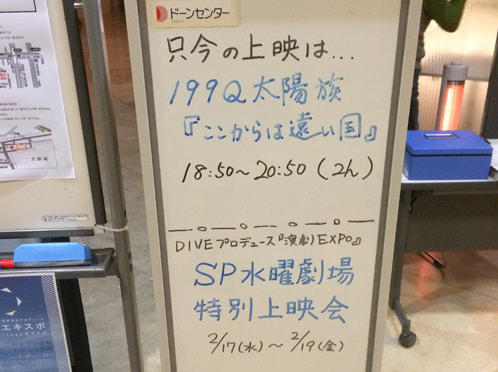 ドーンセンター
只今の上映は...
199Q太陽族
『ここからは遠い国』
18:50～20:50（2h）
DIVEプロデュース『演劇EXPO』
SP水曜劇場
特別上映会
2/17(水)～2/19(金)
エキスポ